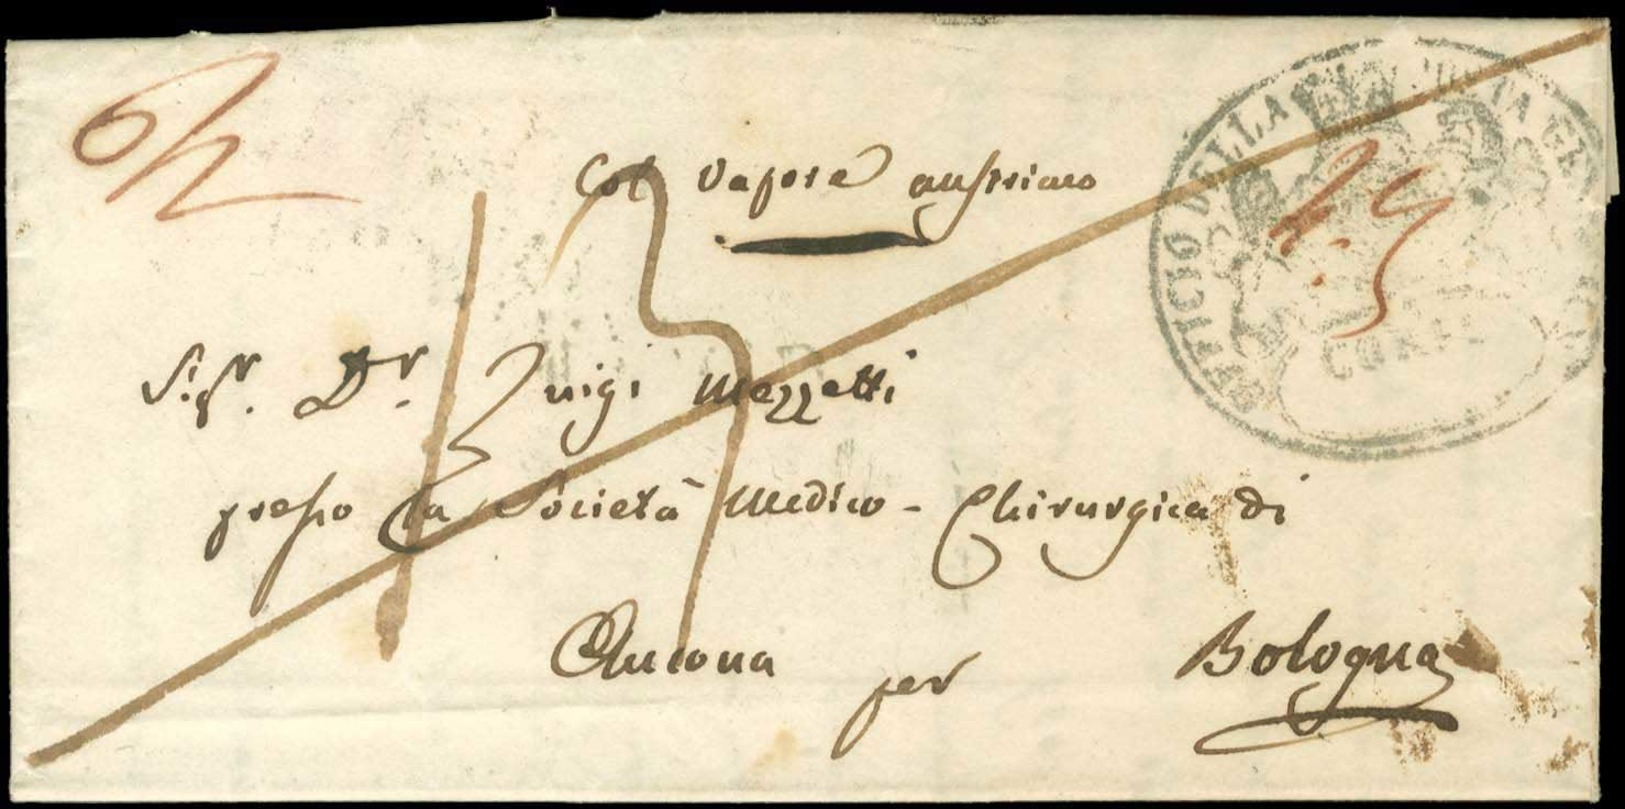 6/2
Col Vapore austriaco
Sigr. Dr. Luigi Mezzetti
presso la Società Medico-Chirurgica di
Ancona per Bologna
UFFICIO DELLA POSTA GEN
CORFU
13